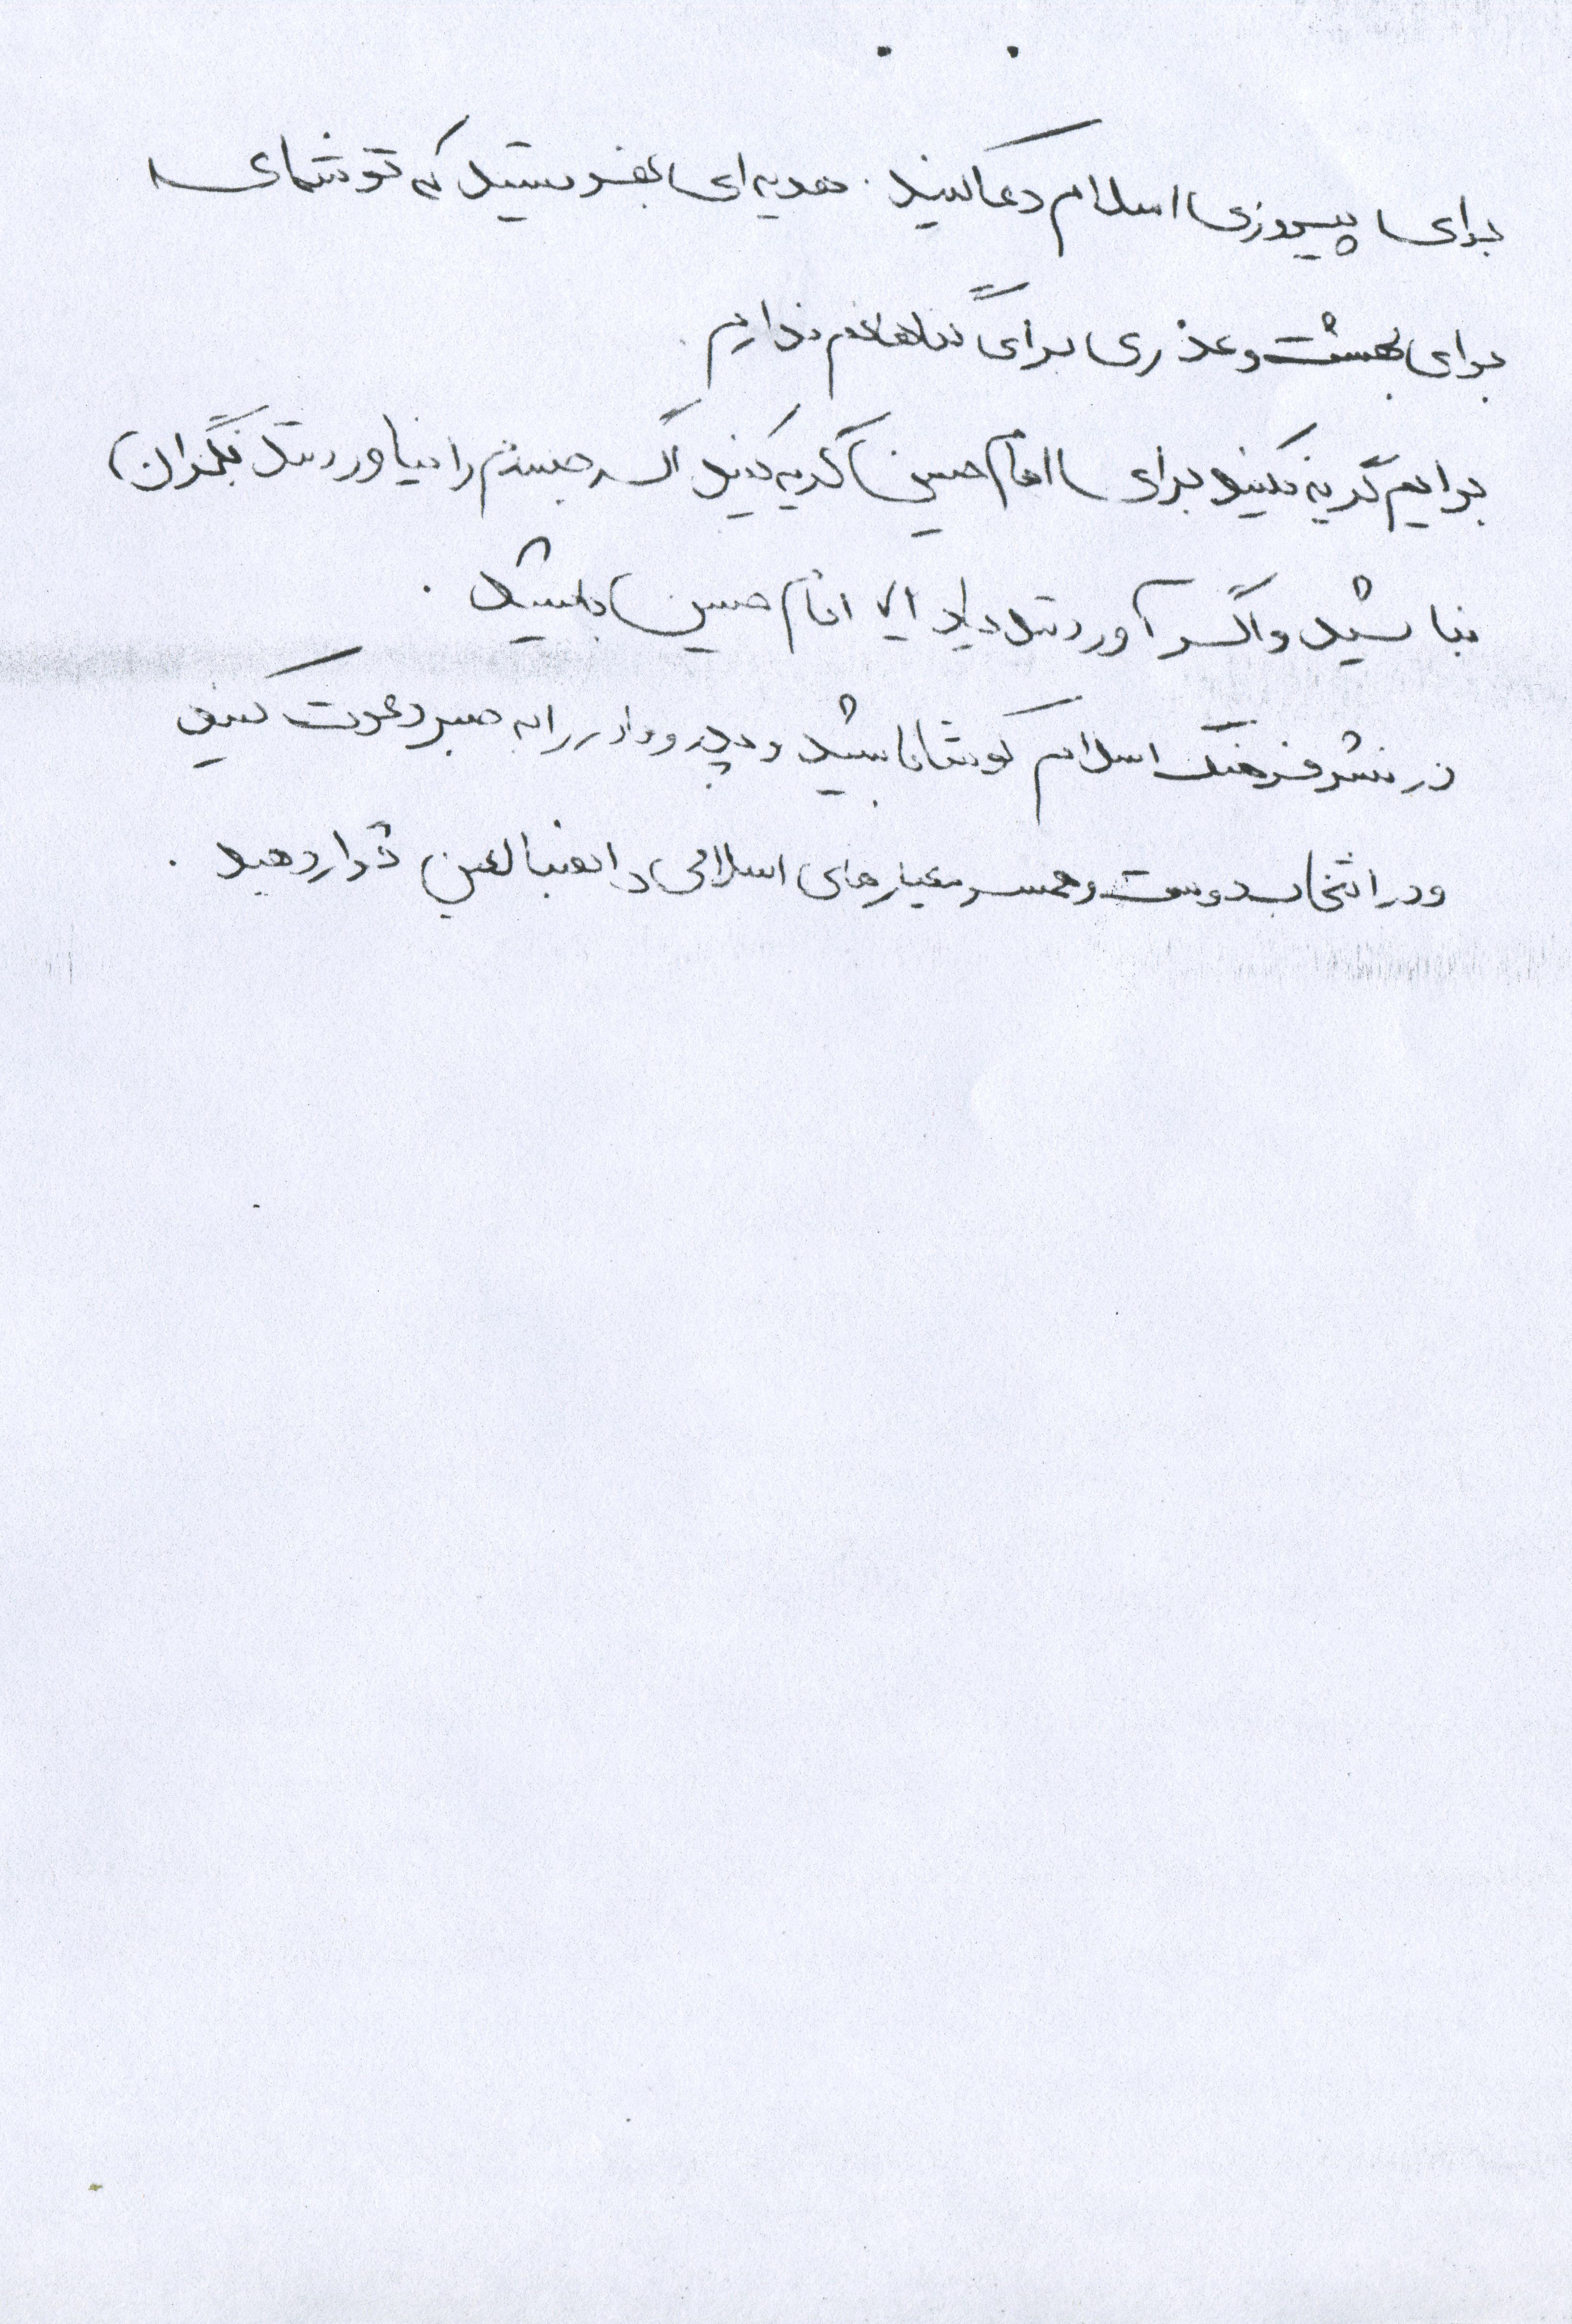 برای پیروزی اسلام دعا کنید. هدیه ای بفرستید که توشه‌ای
برای بهشت و عذری برای گناهانم ندارم.
برایم گریه نکنید برای امام حسین گریه کنید اگر جسدم را نیاوردند نگران
نباشید و اگر آوردند بیاد امام حسین باشید.
در نشر فرهنگ اسلام کوشا باشید و پدر و مادر را به صبر دعوت کنید
و در انتخاب دوست و همسر معیارهای اسلامی را نصب العین قرار دهید.